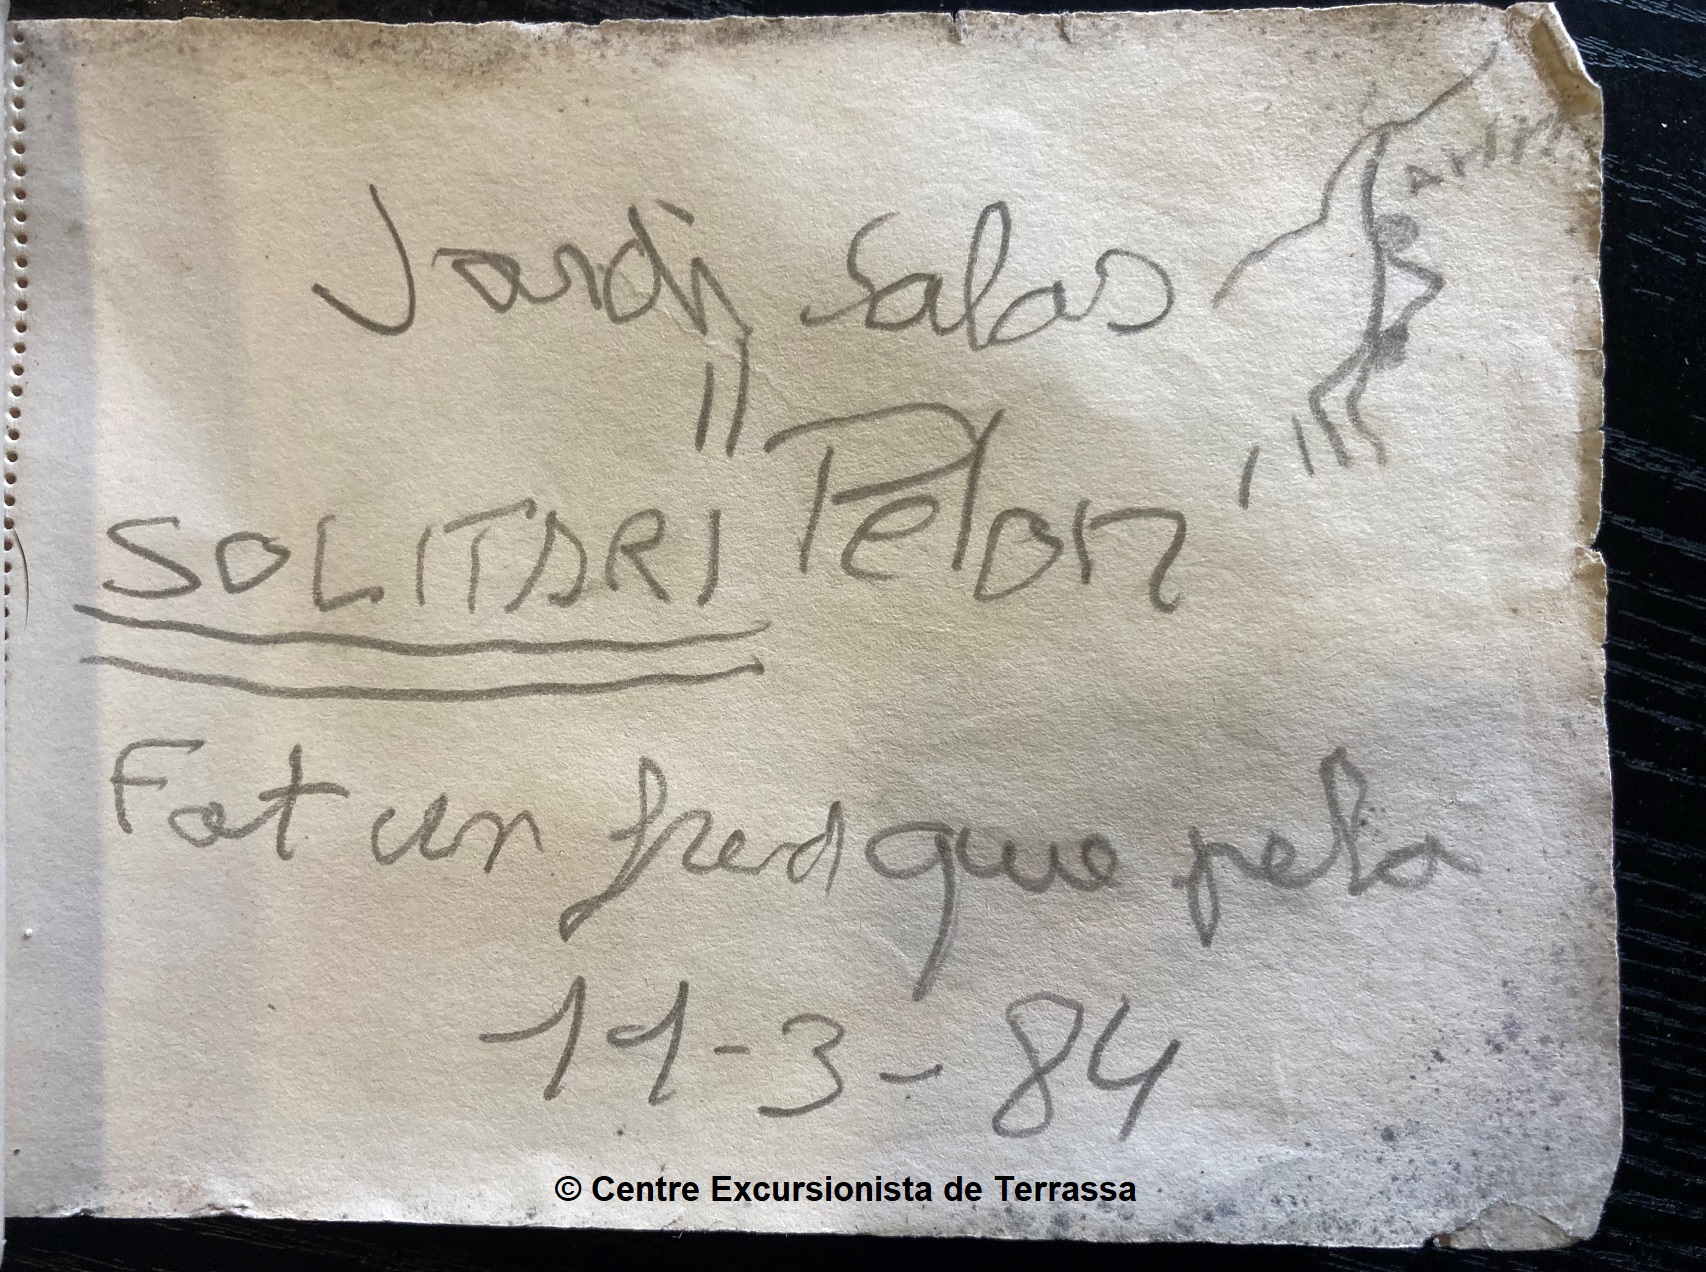 Jordi Salas
SOLITARI
Fot un fred que pela
11-3-84
© Centre Excursionista de Terrassa